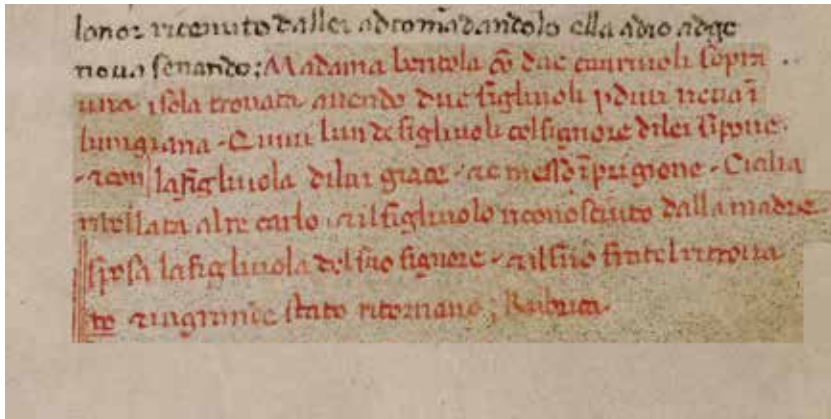 lonor riceuuto dallei adcomādandolo ella adio adge
noua senando; Madama beritola cō due cauriuoli sopra
una isola trouata auendo due figliuoli pduti neua ī
lunigiana - Quiui lun de figliuoli colsignore dilei sipone.
- ⁊con lafigliuola dilui giace - ⁊e messo ī prigione - Cicilia
ribellata alre carlo ⁊ilfigliuolo riconosciuto dalla madre
sposa lafigliuola delsuo signore - ⁊ilsuo fratel ritroua
to ⁊ingrande stato ritornano; Rubrica.